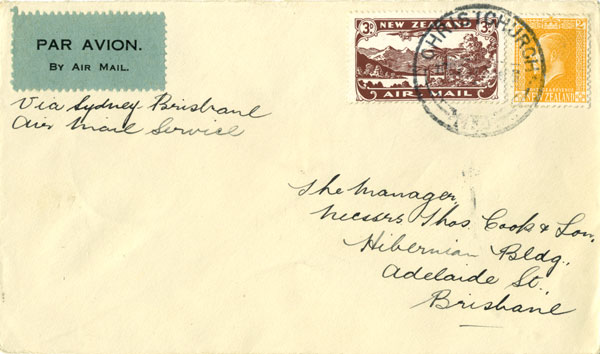 PAR AVION.
BY AIR MAIL.
Via Sydney Brisbane
Air Mail Service
3D NEW ZEALAND 3D
AIR MAIL
ZEALAND
CHRISTCHURCH
The Manager,
Messrs Thos. Cook & Son,
Hibernian Bldg.,
Adelaide St.,
Brisbane